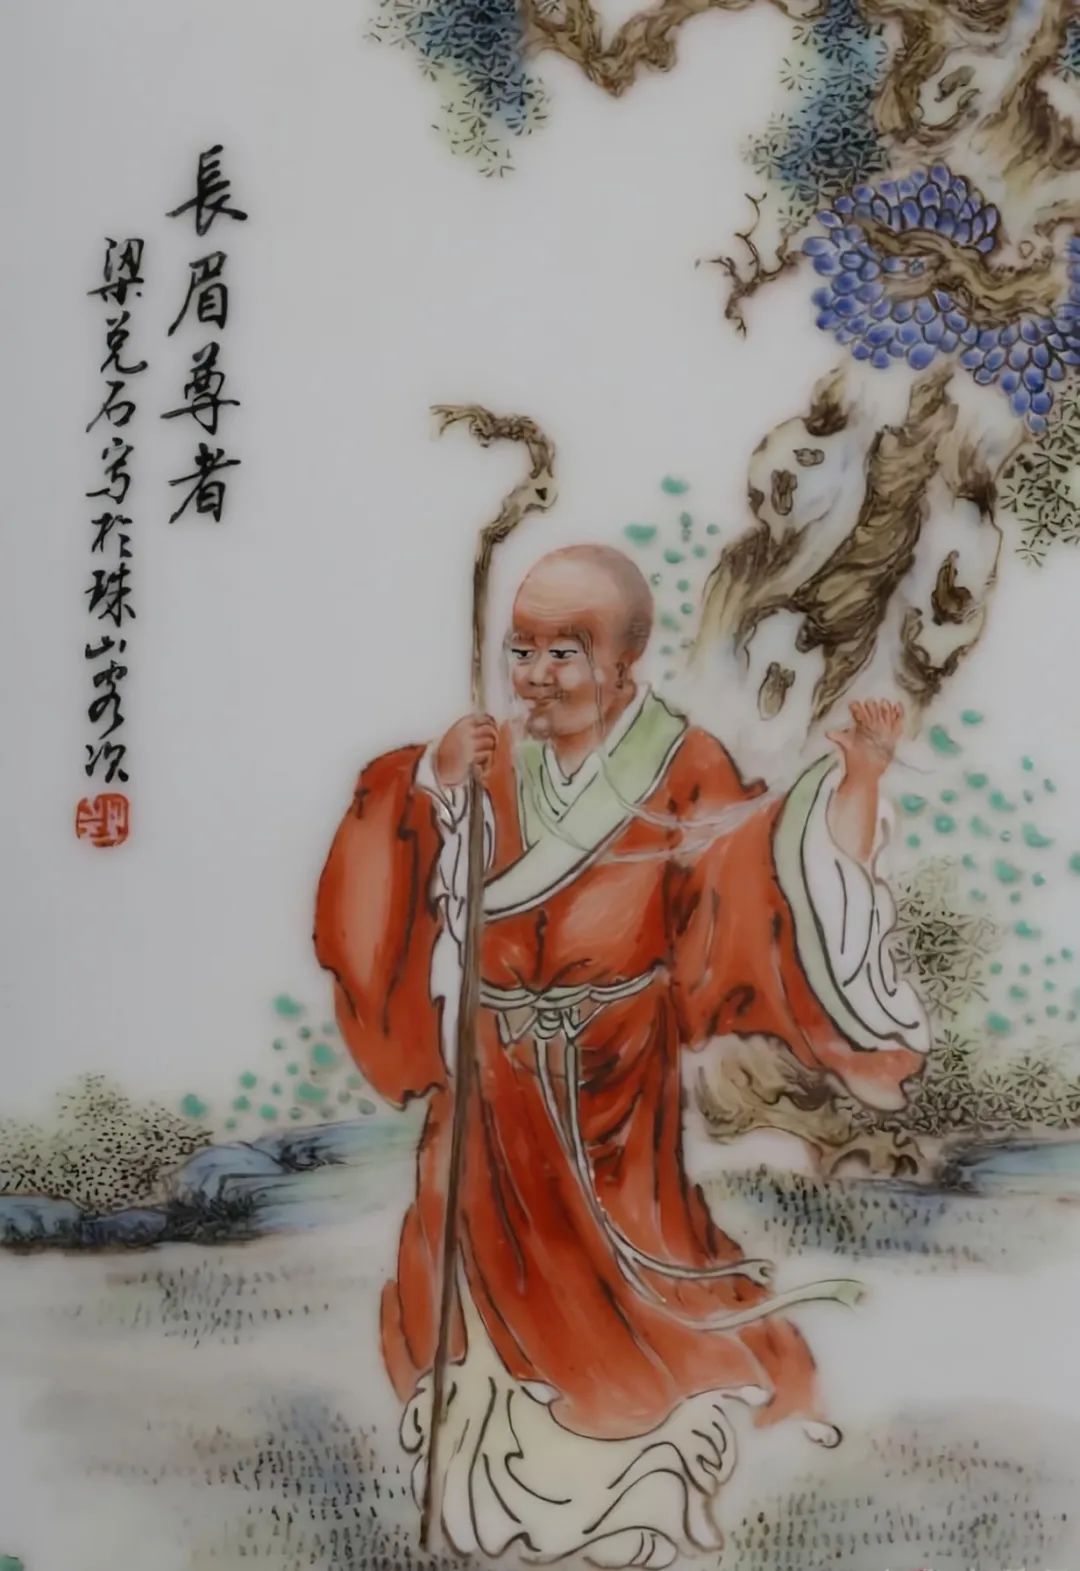 長眉尊者
梁兑石寫於珠山客次